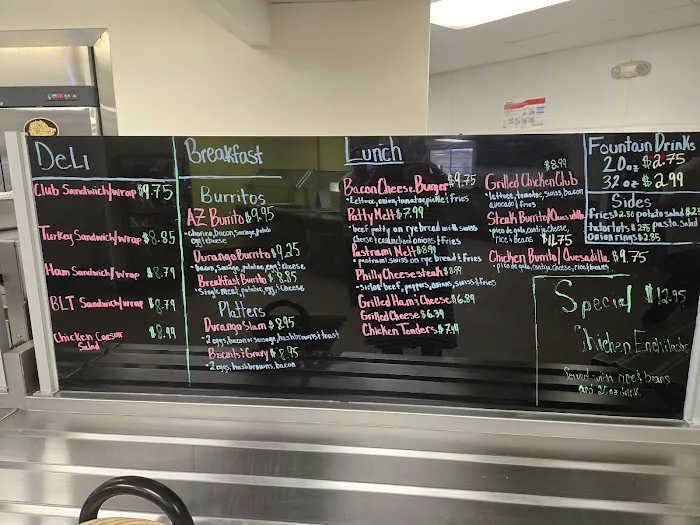 Deli
Club Sandwich/wrap $9.75
Turkey Sandwich/wrap $8.85
Ham Sandwich/wrap $8.79
BLT Sandwich/wrap $8.79
Chicken Caesar $8.99
Salad
Breakfast
Burritos
AZ Burito $9.95
egg & cheese
Durango Burrito $9.25
• bacon, sausage, potatoe, egg & cheese
Breakfast Burrito $8.85
• single meat, potatoe, egg & cheese
Platters
Durango Slam $8.95
• 2 eggs, bacon or sausage, hashbrowns & toast
Biscuits & Gravy $8.95
• 2 eggs, hashbrowns, bacon
Lunch
Bacon Cheese Burger $9.75
• Lettuce, onion, tomatoe, pickle & fries
Patty Melt $7.99
• beef patty on rye bread with swiss
cheese & caramelized onions & fries
Pastrami Melt $8.99
• pastrami, swiss on rye bread & fries
Philly Cheese steak $8.99
• Sirloin beef, peppers, onions, swiss & fries
Grilled Ham & Cheese $6.89
Grilled Cheese $6.39
Chicken Tenders $7.49
$8.99
Grilled Chicken Club
• lettuce, tomatoe, swiss, bacon
avocado & fries
Steak Burrito/Quesadilla
• pico de gallo, cotija cheese,
rice & beans $11.75
Chicken Burrito/Quesadilla $9.75
• pico de gallo, cotija cheese, rice & beans
Fountain Drinks
20oz $2.75
32oz $2.99
Sides
Fries $2.50 potato salad
tator tots $2.75 pasta salad
Onion rings $2.85
Special $12.95
Chicken Enchiladas
Served with rice & beans
and 20oz drink